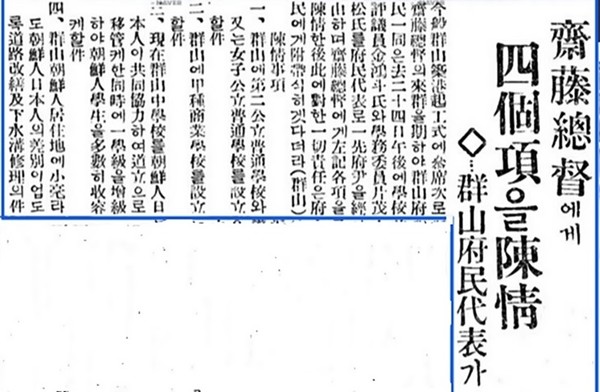 齋藤總督에게
四個項을陳情
◇…群山府民代表가
今般群山築港起工式에參席次로
齋藤總督의來群을期하야群山府
民一同은去二十四日午後에學校
評議員金鴻斗氏와學務委員片茂
松氏를府民代表로一先府尹을經
由하며齋藤總督에게左記各項을
陳情한後此에對한一切責任은府
民에게附帶식히겟다더라(群山)
陳情事項
一、群山에第二公立普通學校와
又는女子公立普通學校를設立
할件
二、群山에甲種商業學校를設立
할件
三、現在群山中學校를朝鮮人日
本人이共同協力하여道立으로
移管케한同時에一學級을增級
하야朝鮮人學生을多數히收容
케할件
四、群山朝鮮人居住地에小毫라
도朝鮮人日本人의差別이업도
록道路改繕及下水溝修理의件